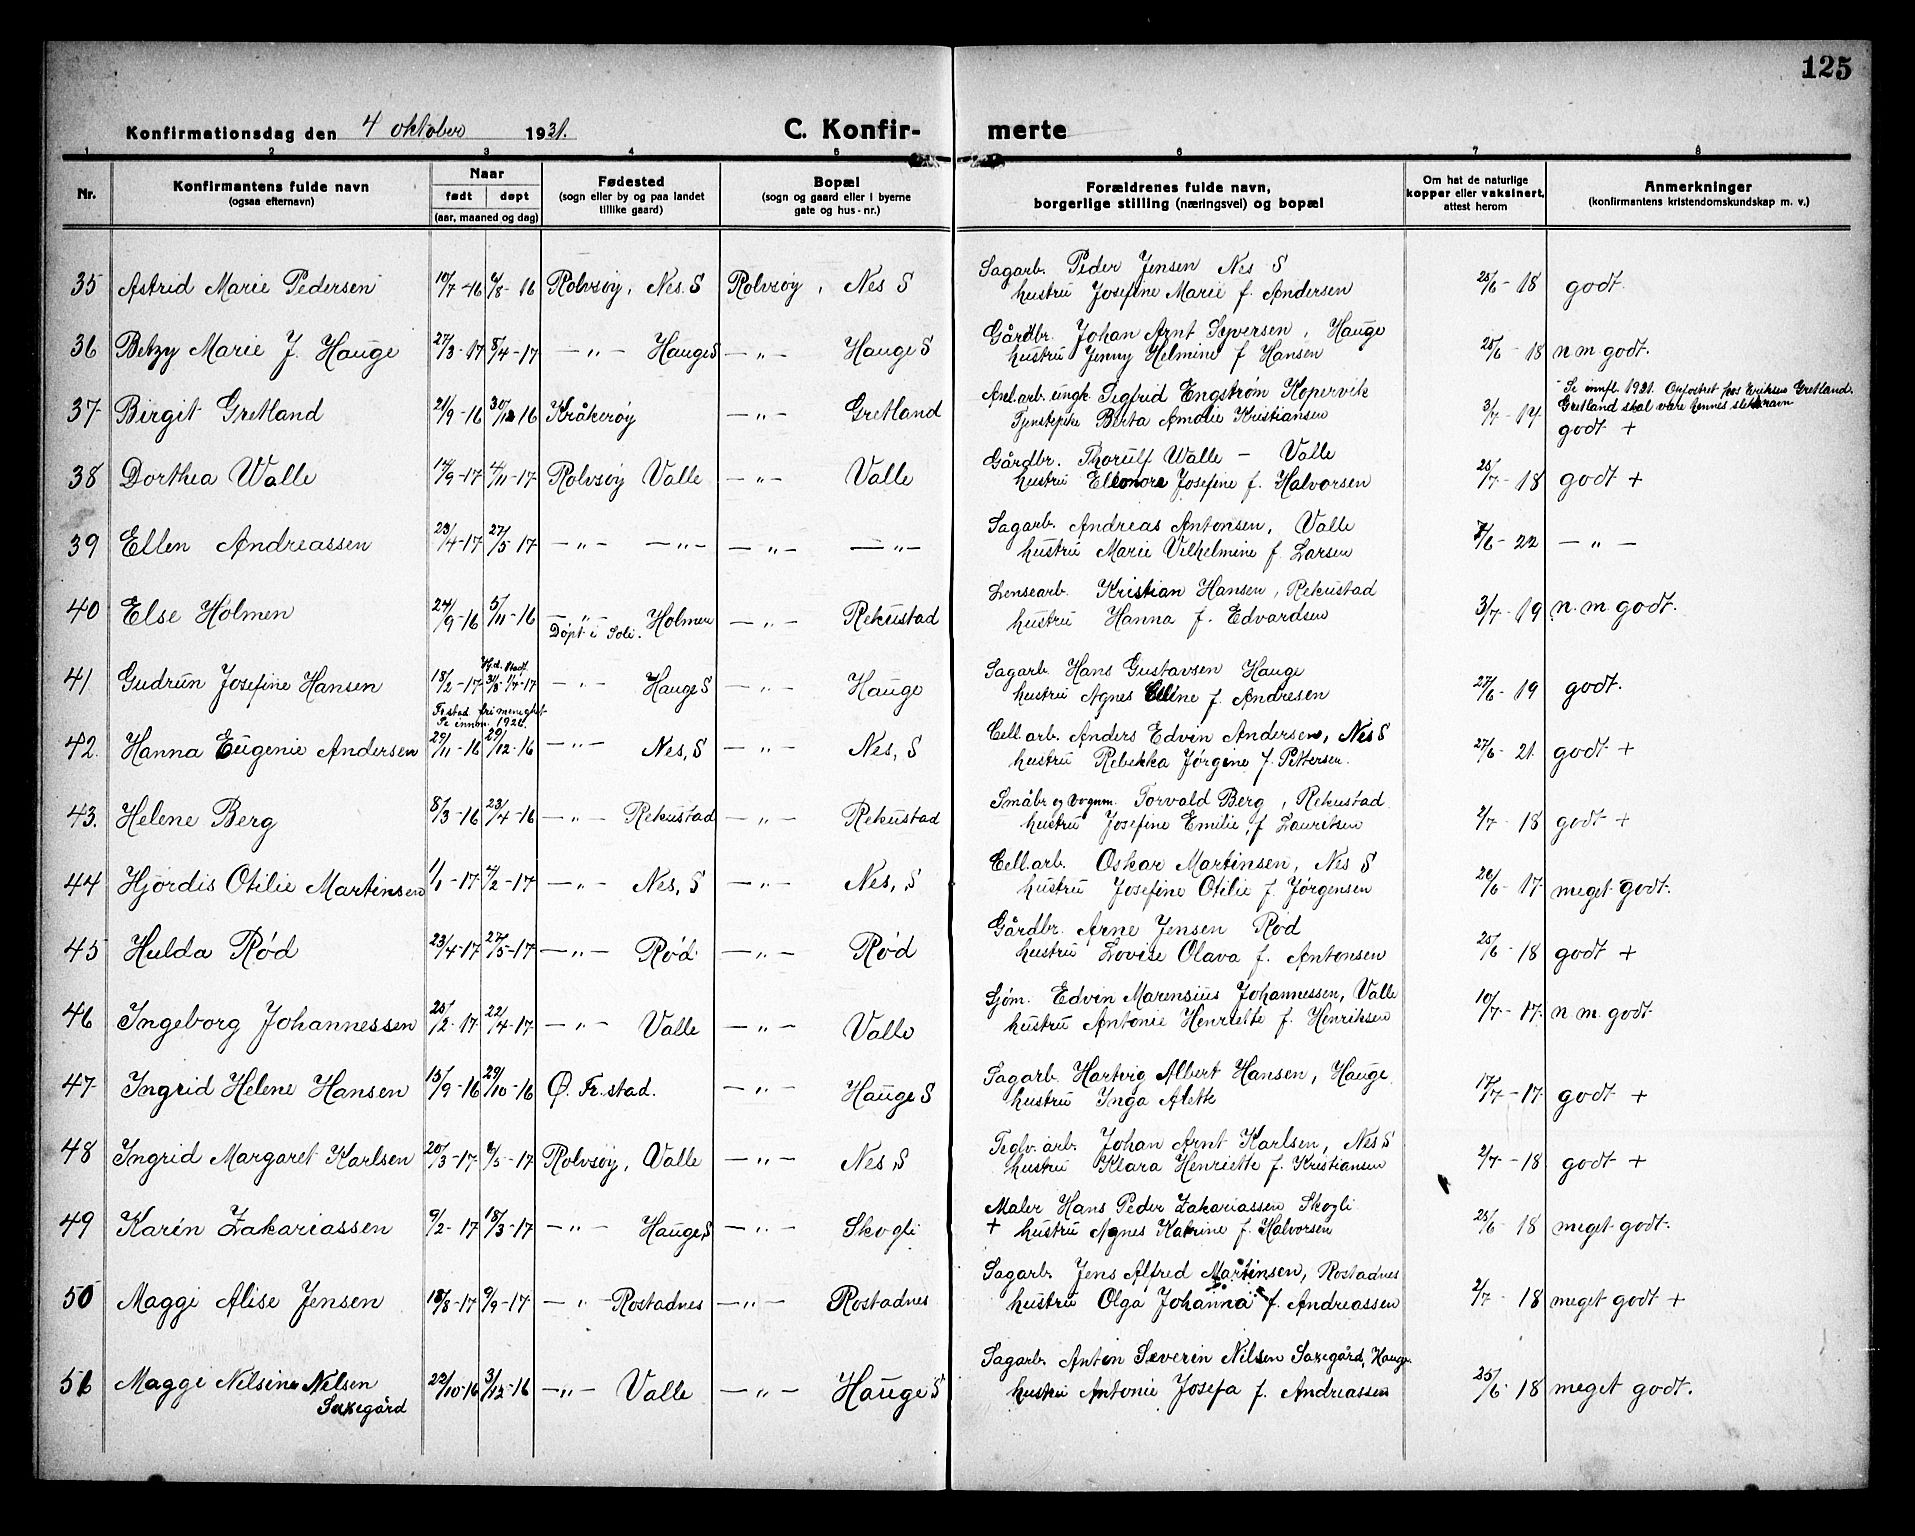 125
Konfirmationsdag den 4 oktober 1931.
C. Konfir- merte
1 2 3 4 5 6 7 8
Nr.
Konfirmantens fulde navn
(ogsaa efternavn)
Naar
født døpt
(aar, maaned og dag)
Fødested
(sogn eller by og paa landet
tillike gaard)
Bopæl
(sogn og gaard eller i byerne
gate og hus-nr.)
Forældrenes fulde navn,
borgerlige stilling (næringsvei) og bopæl
Om hat de naturlige
kopper eller vaksinert,
attest herom
Anmerkninger
(konfirmantens kristendomskundskap m. v.)
Sagarb. Peder Jensen Nes S
35 Astrid Marie Pedersen 10/7-16 6/8-16 Rolvsøy, Nes S Rolvsøy, Nes S hustru Josefine Marie f. Andersen 25/6-18 godt.
Gårdbr. Johan Arnt Syversen, Hauge
36 Betzy Marie J. Hauge 27/3-17 8/4-17 —"— Hauge S —"— Hauge S hustru Jenny Helmine f Hansen 25/6-18 n.m. godt.
Anl.arb. ungk. Sigfrid Engstrøm Kopervik Se innfl. 1921. Opfostret hos Eriksen Gretland.
37 Birgit Gretland 21/9-16 30/12 16 Kråkerøy —"— Gretland Tjenstepike Berta Amalie Kristiansen 3/7-17 Gretland skal være hennes slektsnavn
godt +
Gårdbr. Thorulf Walle - Valle
38 Dorthea Walle 14/9-17 4/11-17 Rolvsøy Valle —"— Valle hustru Elleonore Josefine f. Halvorsen 25/7-18 godt +
Sagarb. Andreas Antonsen, Valle
39 Ellen Andreassen 23/4-17 27/5-17 —"— —"— —"— —"— hustru Marie Vilhelmine f. Larsen 7/6-22 —"—
Lensearb. Kristian Hansen, Rekustad
40 Else Holmen 24/9-16 5/11-16 —"— Holmen —"— Rekustad hustru Hanna f. Edvardsen 3/7-19 n.m. godt.
Døpt i Soli.
Hjd. stadf.
Sagarb. Hans Gustavsen Hauge
41 Gudrun Josefine Hansen 18/2-17 31/5 1/7-17 —"— Hauge S —"— Hauge hustru Agnes Elline f. Andresen 27/6-19 godt.
Fr.stad frimenighet
Se innm. 1921.
Cell.arb. Anders Edvin Andersen, Nes S
42. Hanna Eugenie Andersen 29/11-16 29/12-16 —"— Nes, S —"— Nes, S hustru Rebekka Jørgine f. Pettersen. 27/6-21 godt +
Småbr og vognm. Torvald Berg, Rekustad
43. Helene Berg 8/3-16 23/4-16 —"— Rekustad —"— Rekustad hustru Josefine Emilie, f Lauritsen 2/7-18 godt +
Cell.arb. Oskar Martinsen, Nes S
44 Hjørdis Otilie Martinsen 1/1-17 4/2-17 —"— Nes, S —"— Nes, S hustru Josefine Otilie f. Jørgensen 26/6-17 meget godt.
Gårdbr. Arne Jensen Rød
45 Hulda Rød 23/4-17 27/5-17 —"— Rød —"— Rød hustru Lovise Olava f. Antonsen 25/6-18 godt +
Sjøm. Edvin Marensius Johannessen, Valle
46 Ingeborg Johannessen 25/2-17 22/4-17 —"— Valle —"— Valle hustru Antonie Henriette f. Henriksen 10/7-17 n.m. godt
Sagarb. Hartvig Albert Hansen, Hauge
47 Ingrid Helene Hansen 15/9-16 29/10-16 Ø. Fr.stad. —"— Hauge S hustru Inga Alette 17/7-17 godt +
Teglv.arb. Johan Arnt Karlsen, Nes S
48 Ingrid Margaret Karlsen 20/3-17 6/5-17 Rolvsøy, Valle —"— Nes, S hustru Klara Henriette f. Kristiansen 2/7-18 godt +
Maler Hans Peder Zakariassen Skogli
49 Karin Zakariassen 9/2-17 18/3-17 —"— Hauge, S —"— Skogli + hustru Agnes Katrine f. Halvorsen 25/6-18 meget godt.
Sagarb. Jens Alfred Martinsen, Rostadnes
50 Maggi Alise Jensen 18/8-17 9/9-17 —"— Rostadnes —"— Rostadnes hustru Olga Johanna f. Andreassen 2/7-18 meget godt +
Sagarb. Anton Severin Nilsen Saxegård, Hauge
51 Maggi Nilsine Nilsen 22/10-16 3/12-16 —"— Valle —"— Hauge S hustru Antonie Josefa f. Andreassen 25/6-18 meget godt.
Saxegård